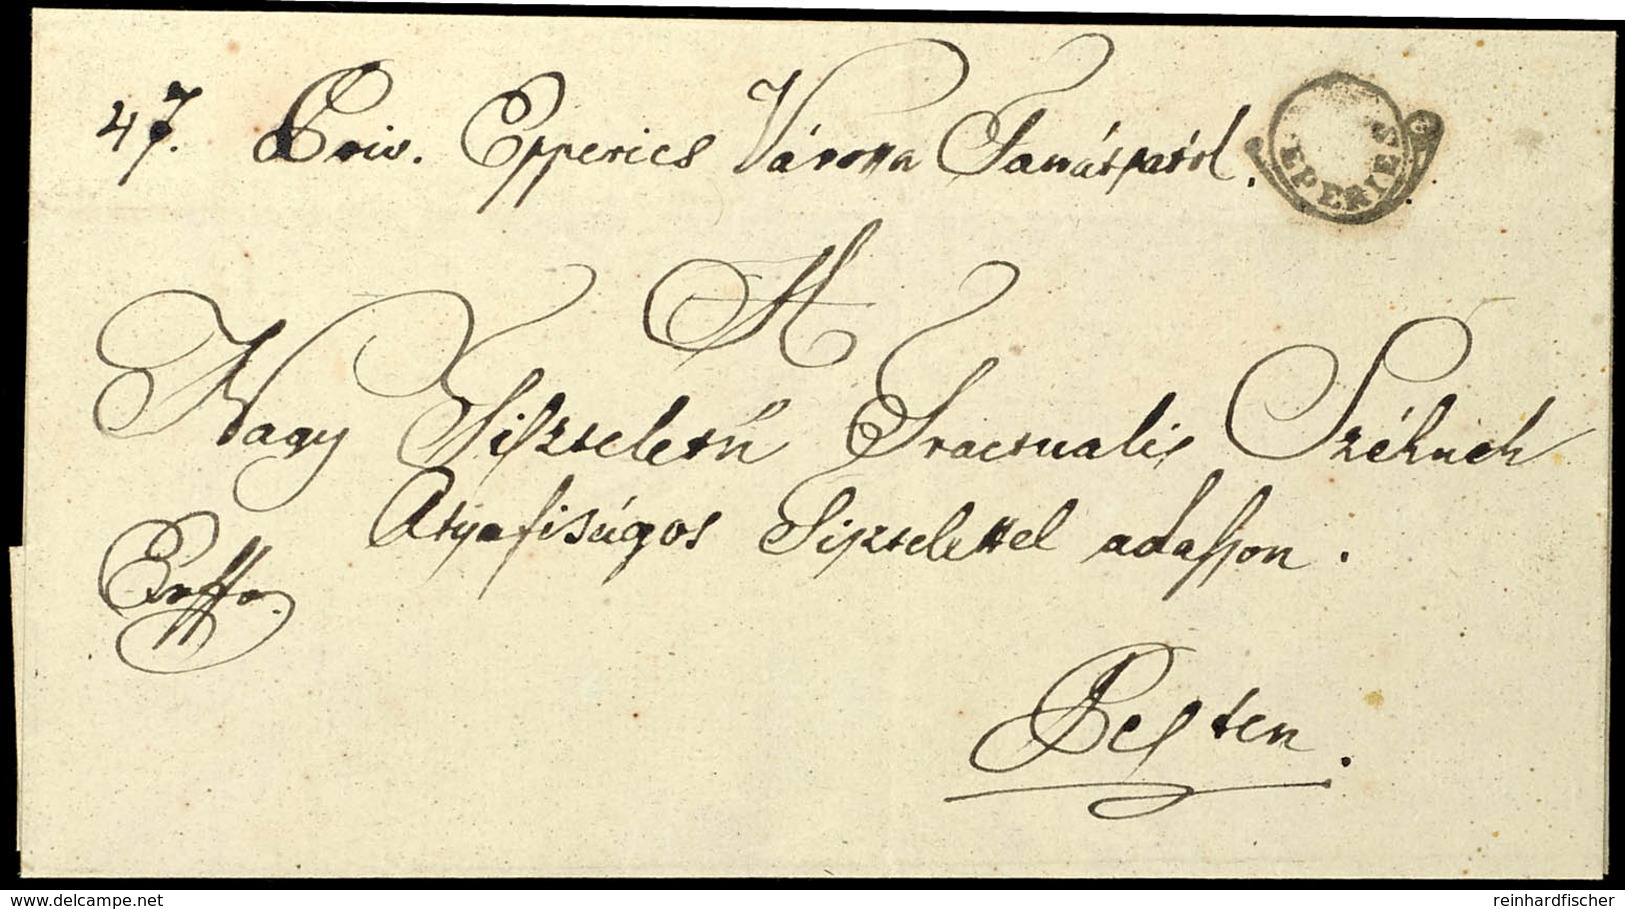 47. Priv. Epperies Várossa Tanátsától.
EPERIES
A
Nagy Tiszteletű Tractualis Széknek
Atyafiságos Tisztelettel adasson.
Pesten.
delcampe.net
reinhardfischer